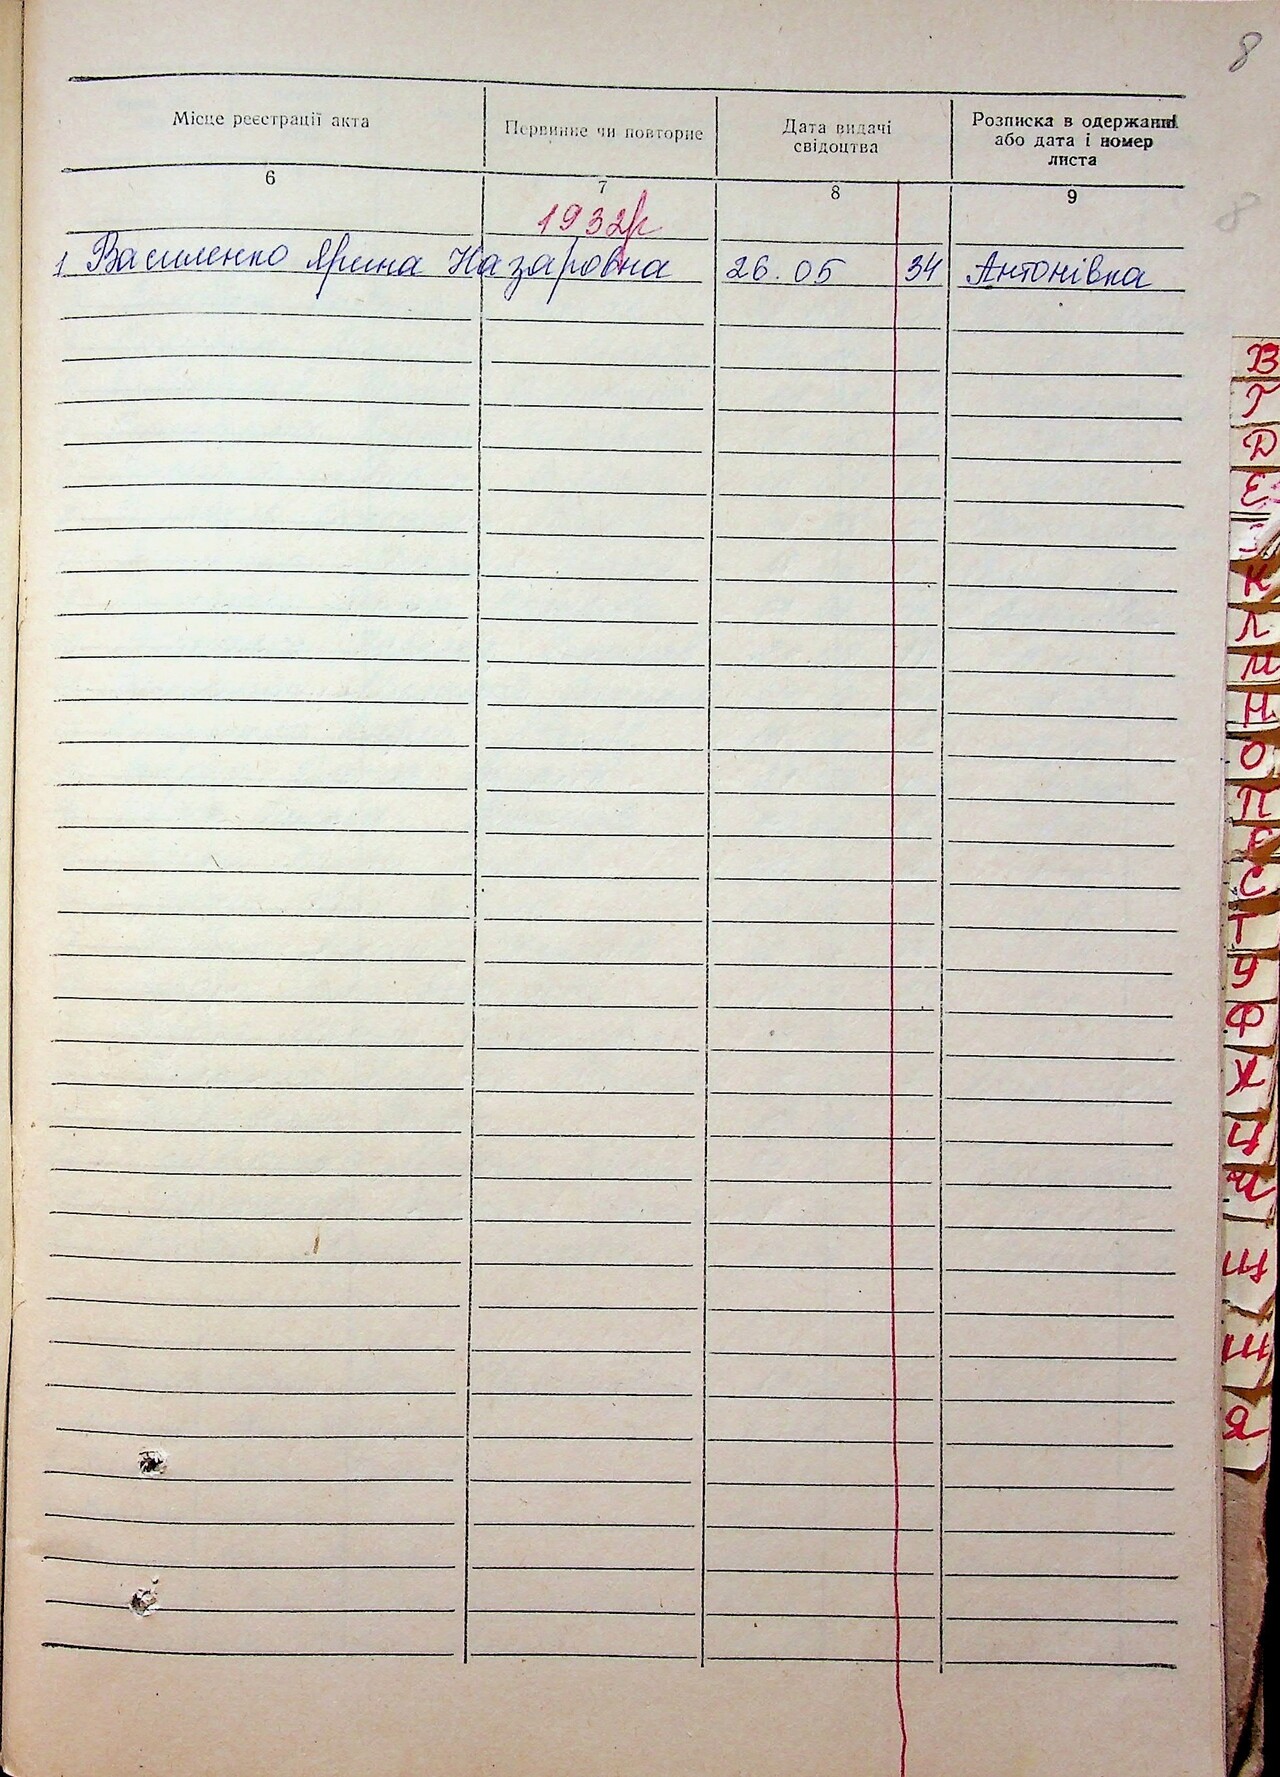 8
Місце реєстрації акта Первинне чи повторне Дата видачі свідоцтва Розписка в одержанні або дата і номер листа
6 7 8 9
8
1932р
1 Василенко Ярина Назаровна 26.05 34 Антонівка
В
Г
Д
Е
К
Л
М
Н
О
П
Р
С
Т
У
Ф
Х
Ц
Ч
Щ
Ш
Я